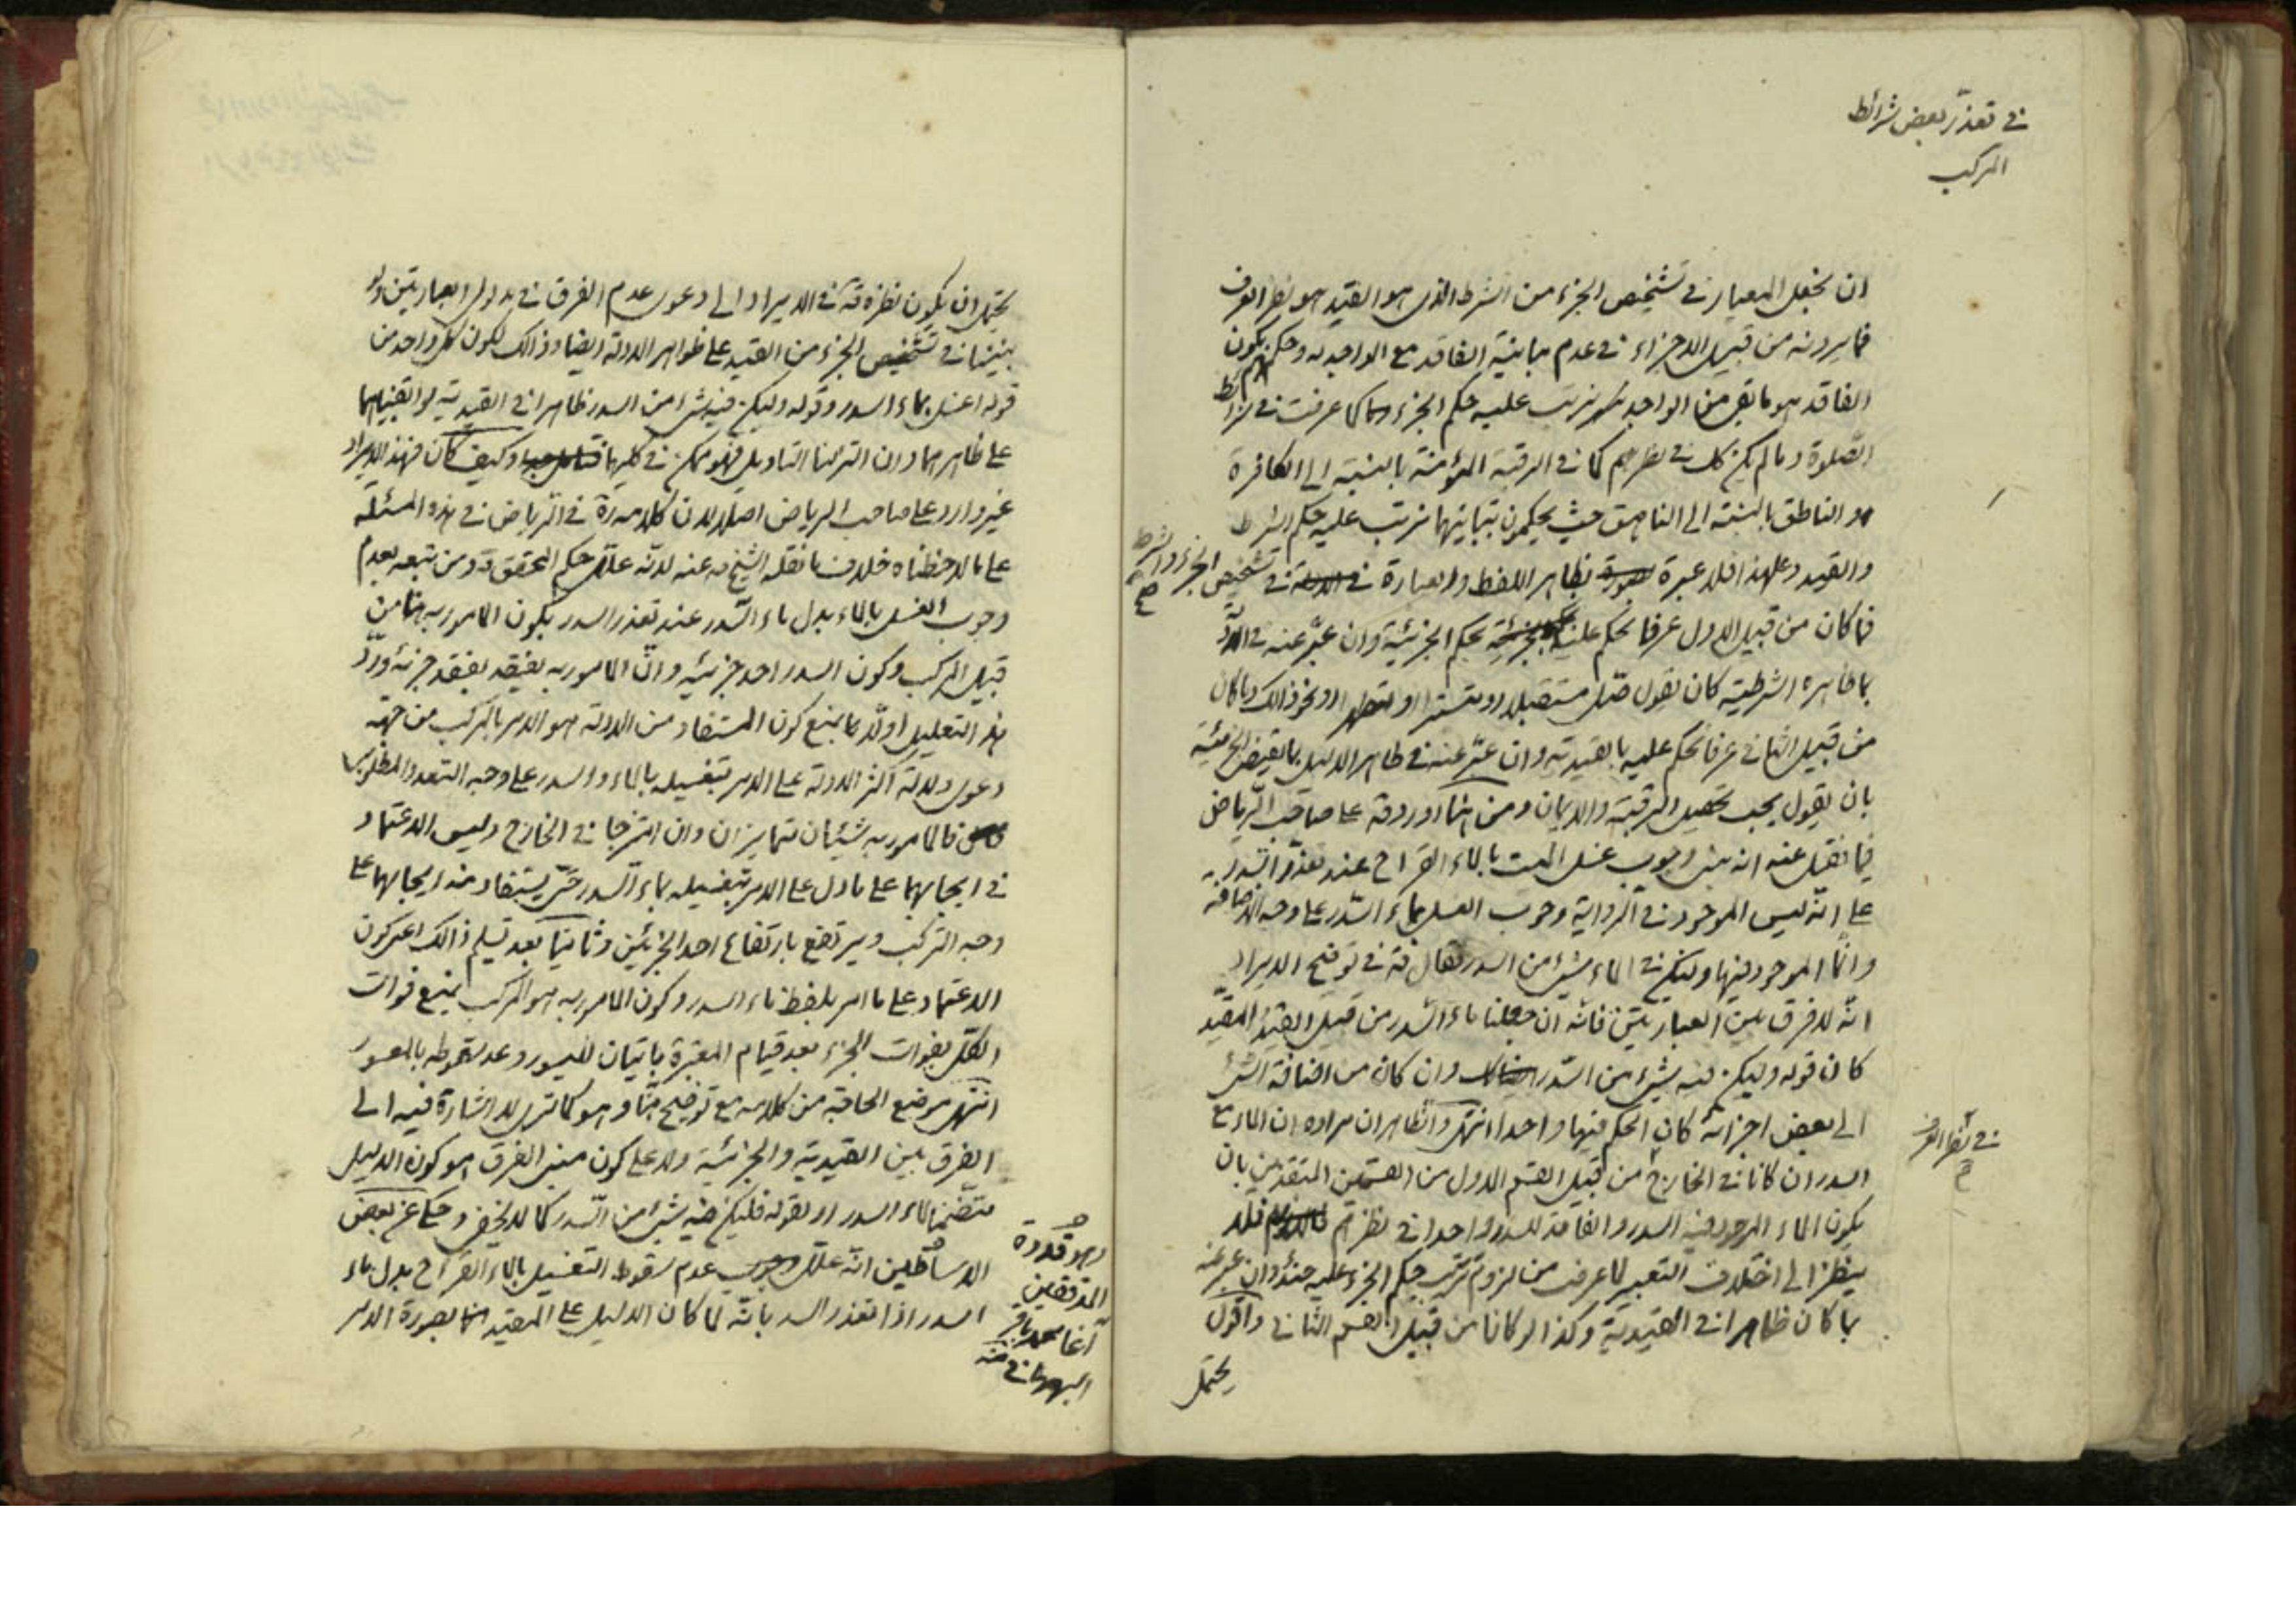 في تعذّر بعض شرائط
المركب
ان نجعل المعيار في تشخيص الجزء من الشرط الذى هو القيد هو نظر العرف
فما يرونه من قبيل الاجزاء في عدم مباينة الفاقد مع الواجد له وحكمهم بكون
الفاقد هو ما بقى من الواجد يترتب عليه حكم الجزء كما عرفت في شرائط
الصّلوة وما لم يكن كك في نظرهم كما في الرقبة المؤمنة بالنسبة الى الكافرة
والناطق بالنسبة الى الناهق حيث يحكمون بتباينهما يترتب عليه حكم الشرط
والقيد وعلى هذا فلا عبرة بظاهر اللفظ والعبارة في تشخيص الجزء والشرط
صح
فما كان من قبيل الاول عرفا نحكم عليه بحكم الجزئية وان عبّر عنه في
بما ظاهره الشرطية كان يقول صلّ مستقبلا او متسترا او متطهرا او نحو ذالك وما كان
من قبيل الثاني عرفا نحكم عليه بالقيدية وان عبّر عنه في ظاهر الدليل بما يقتضى الجزئية
بان يقول يجب تحصيل الرقبة والايمان ومن هنا اورد قه على صاحب الرّياض
فيما نقل عنه انه بنى وجوب غسل الميت بالماء القراح عند تعذّر السّدر به
على انّه ليس الموجود في الرّواية وجوب الغسل بماء السّدر على وجه الاضافة
وانّما الموجود فيها وليكن في الماء شىء من السدر فقال قه في توضيح الايراد
انّه لا فرق بين العبارتين فانّه ان جعلنا ماء السّدر من قبيل القيد والمقيّد
كان قوله وليكن فيه شىء من السّدر وان كان من اضافة الشىء
الى بعض اجزائه كان الحكم فيهما واحدا انتهى والظاهر ان مراده ان الماء مع
في نظر العرف
السدر ان كانا في الخارج من قبيل القسم الاول من القسمين المتقدمين بان
يكون الماء الموجود فيه السدر والفاقد للسدر واحدا في نظرهم فلا
ينظر الى اختلاف التعبير لما عرفت من لزوم ترتيب حكم الجزء عليه حينئذ وان عبر عنه
بما كان ظاهرا في القيدية وكذا لو كانا من قبيل القسم الثاني واقول
يحتمل
يحتمل ان يكون نظره قه في الايراد الى دعوى عدم الفرق في مدلول العبارتين ولو
بنينا في تشخيص الجزء من القيد على ظواهر الادلة ايضا وذالك لكون كل واحد من
قوله اغسل بماء السدر وقوله وليكن فيه شىء من السدر ظاهرا في القيدية لو ابقيناهما
على ظاهرهما وان التزمنا التاويل فهو ممكن في كليهما وكيف كان فهذا الايراد
غير وارد على صاحب الرياض اصلا لان كلامه ره في الرّياض في هذه المسئلة
على ما لاحظناه خلاف ما نقله الشيخ ره عنه لانّه علّل حكم المحقق قه ومن تبعه بعدم
وجوب الغسل بالماء بدل ماء السّدر عند تعذر السدر بكون المامور به هنا من
قبيل المركب وكون السدر احد جزئيه وانّ المامور به ينتفى بفقد جزئه وردّ
هذا التعليل اولا بما يمنع كون المستفاد من الادلة هو الامر بالمركب من جهة
دعوى دلالة اكثر الادلة على الامر بتغسيله بالماء والسدر على وجه التعدد المطلوبى
فالمامور به شيئان متمايزان وان امتزجا في الخارج وليس الاعتماد
في ايجابهما على ما دل على الامر بتغسيله بماء السّدر حتى يستفاد منه ايجابهما على
وجه التركب ويرتفع بارتفاع احد الجزئين وثانيا بعد تسليم ذالك اعنى كون
الاعتماد على ما امر بلفظ ماء السدر وكون المامور به هو المركب بمنع فوات
الكل بفوات الجزء بعد قيام المعتبرة باتيان الميسور وعدم سقوطه بالمعسور
انتهى موضع الحاجة من كلامه مع توضيح منّا وهو كما ترى لا اشارة فيه الى
الفرق بين القيدية والجزئية ولا على كون مبنى الفرق هو كون الدليل
متضمنا لماء السدر او بقوله فليكن فيه شىء من السّدر كما لا يخفى وحكى عن بعض
الاساطين انّه علّل عدم سقوط التغسيل بالماء القراح بدل ماء
السدر اذا تعذر السدر بانّه لما كان الدليل على المقيد بصورة الامر
وهو قدوة
المدققين
آغا محمد باقر
البهبهاني منه